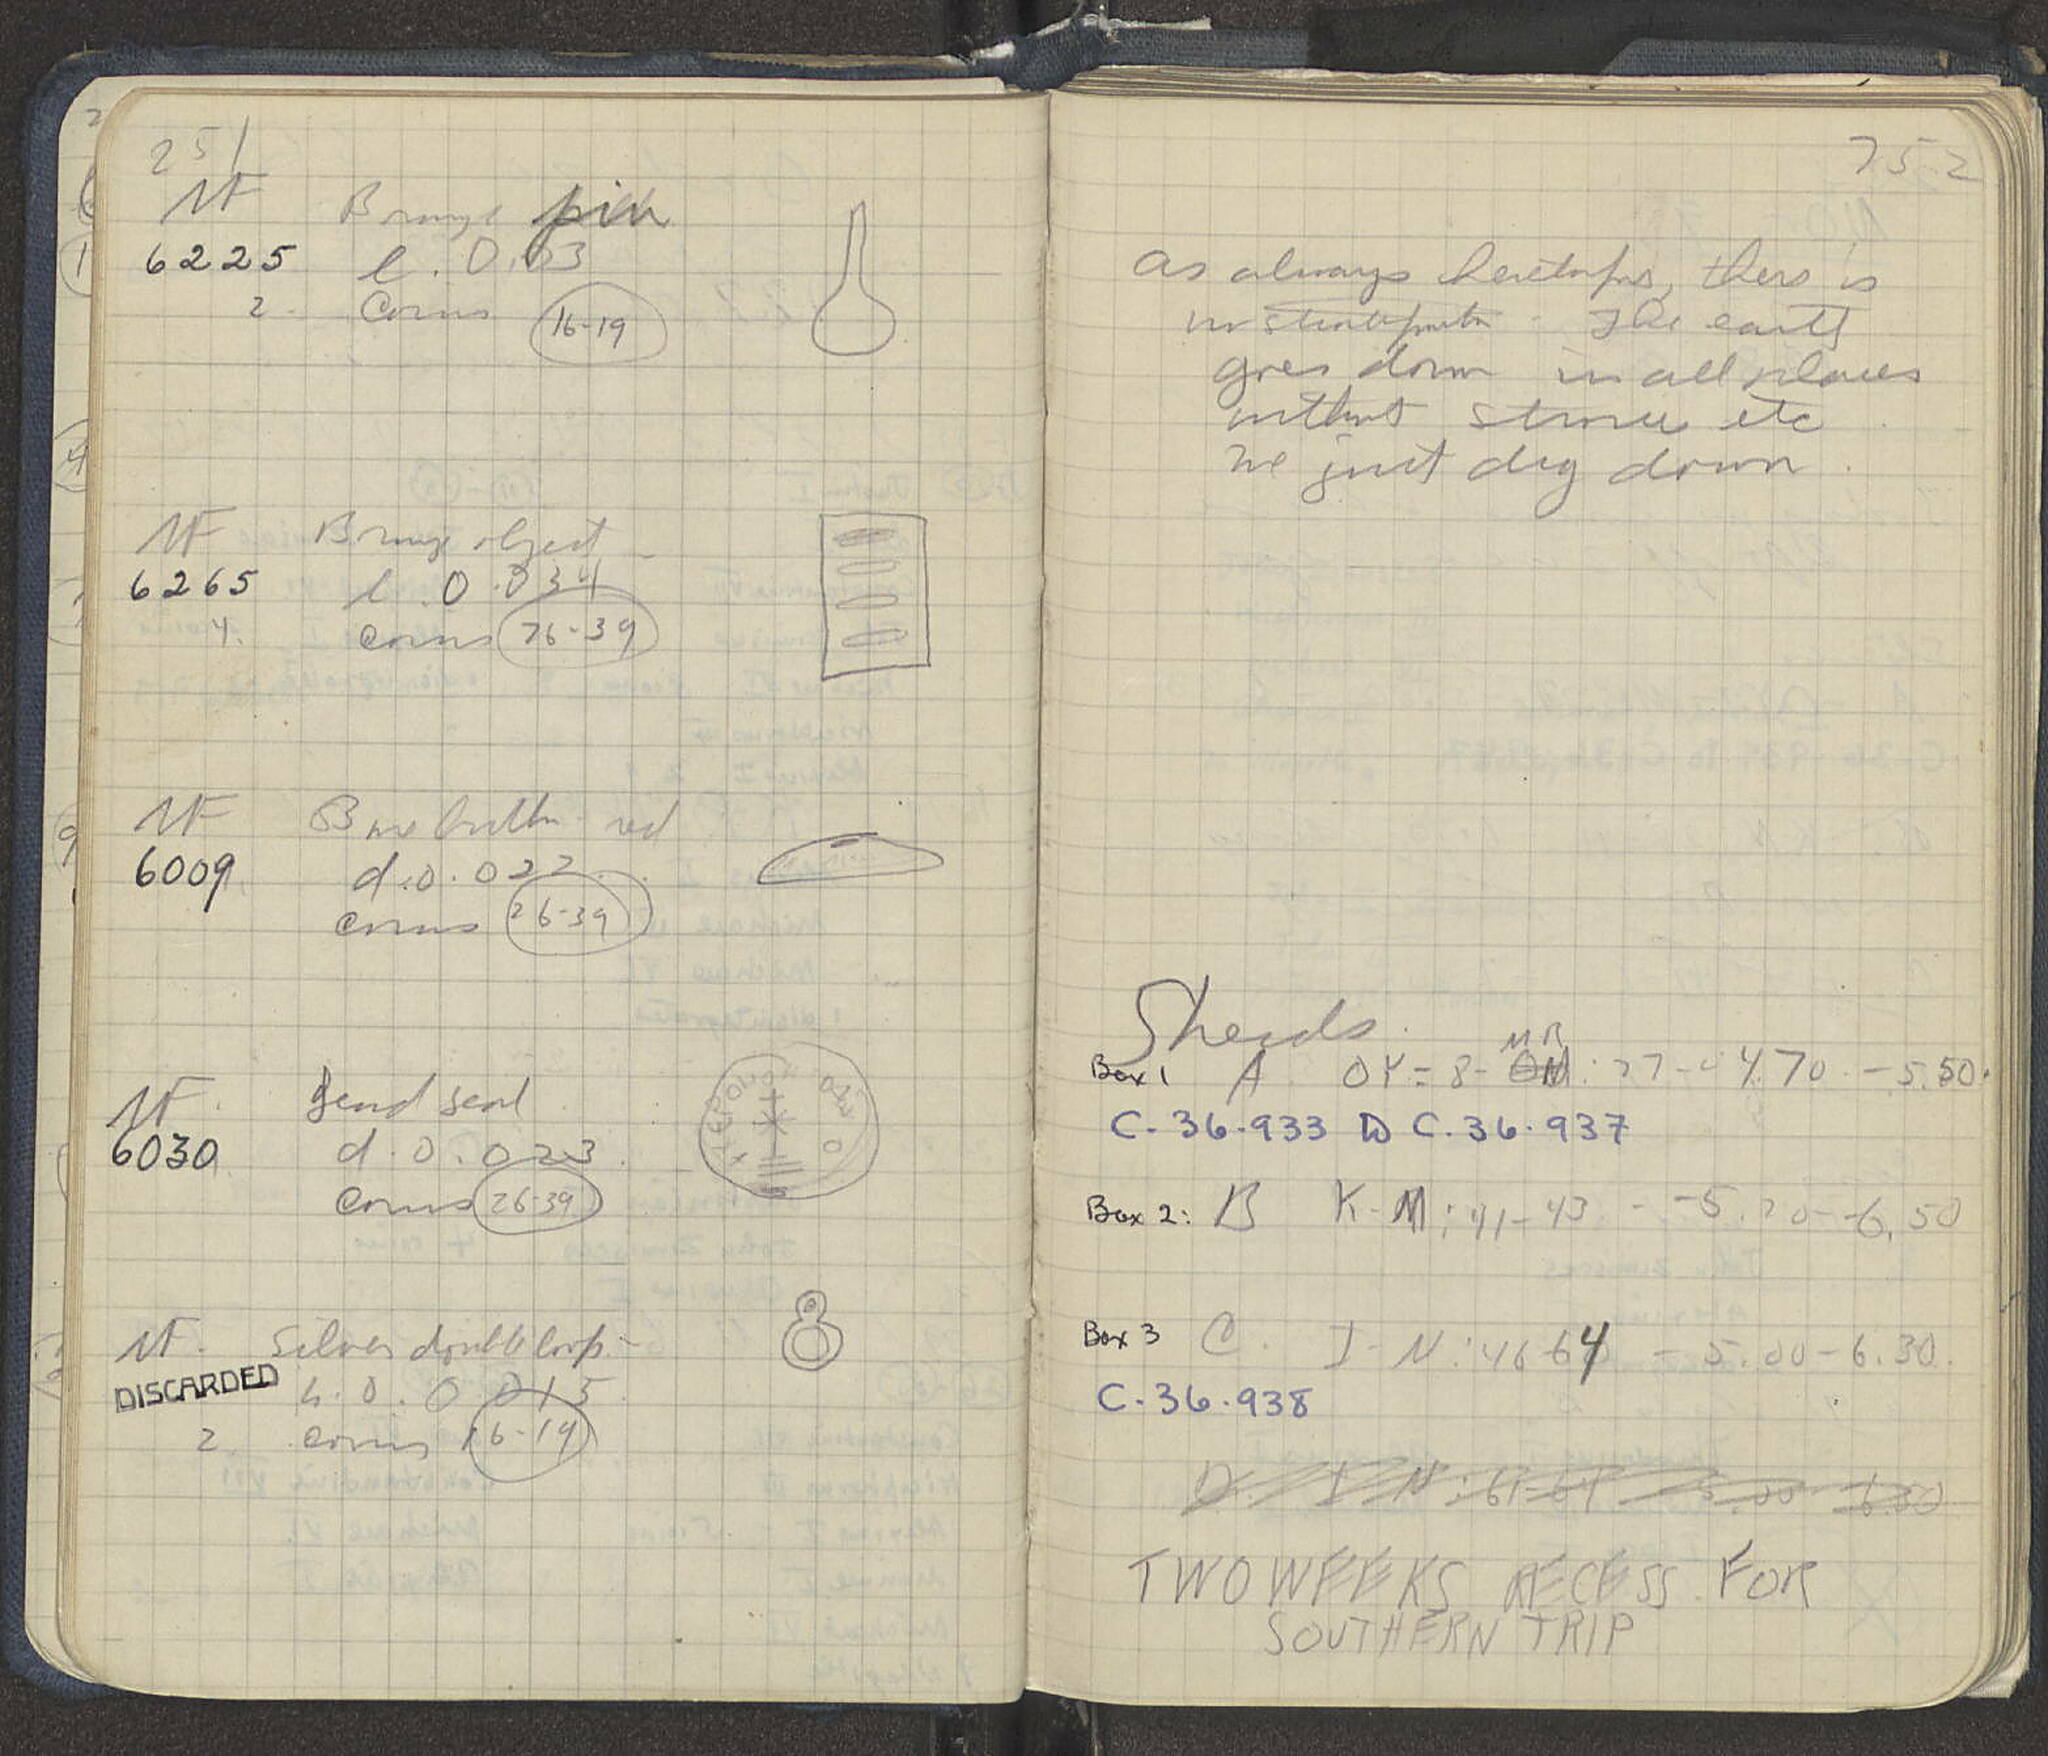 251
MF Bronze pin
6225 l. 0.03
2. Coins 16-19
MF Bronze object
6265 l. 0.034
4. coins 26-39
MF Bone button red
6009 d. 0.022
coins 26-39
MF Lead seal
6030 d. 0.023
coins 26-39
MF. Silver double loop
DISCARDED h. 0.015
2. coins 16-19
252
As always heretofore, there is
no stratification. The earth
goes down in all places
without strosis etc
We just dig down.
Sherds.
MR
Box 1 A - 4.70 - 5.50.
C-36-933 to C-36-937
Box 2: B K-M: 41-43 - -5.20--6.50
Box 3 C. I-N: 46-64 - 5.00-6.30.
C-36-938
D. I-N: 61-64
TWO WEEKS RECESS FOR
SOUTHERN TRIP